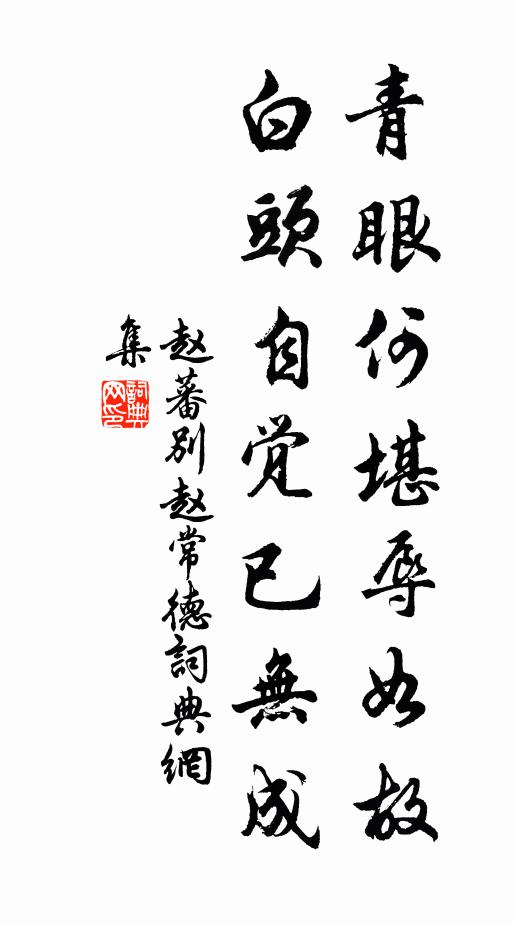 青眼何堪辱如故
白頭自觉已無成
赵蕃别赵常德詞典網
集
詞典
网印